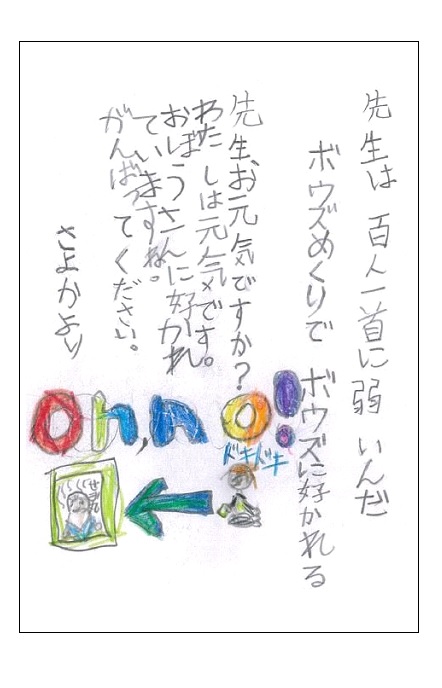 先生は 百人一首に弱いんだ
ボウズめくりで ボウズに好かれる
先生、お元気ですか?
わたしは元気です。
おぼうさんに好かれ
ていますね。
がんばってください。
さよかより
Oh,no!
ドキドキ
せみ丸